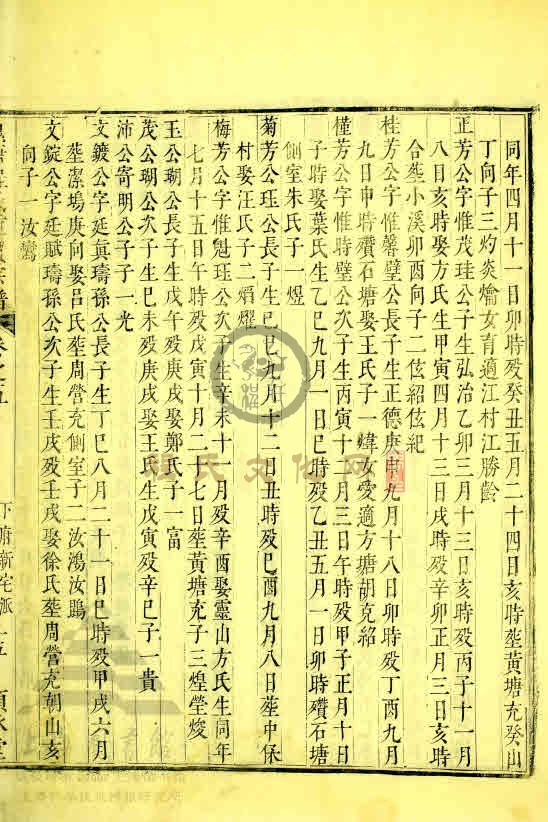 同年四月十一日卯時歿癸丑五月二十四日亥時塟黄塘充癸山
丁向子三灼炎爚女育適江村江勝齡
正芳公字惟茂珪公子生弘治乙卯三月十三日亥時歿丙子十一月
八日亥時娶方氏生甲寅四月十三日戌時歿辛卯正月三日亥時
合塟小溪卯酉向子二伭紹伭紀
桂芳公字惟馨璧公長子生正德庚申九月十八日卯時歿丁酉九月
九日申時殯石塘娶王氏子一煒女愛適方塘胡克紹
槿芳公字惟時璧公次子生丙寅十一月三日午時歿甲子正月十日
子時娶葉氏生乙巳九月一日巳時歿乙丑五月一日卯時殯石塘
側室朱氏子一煜
菊芳公玨公長子生己巳九月十二日丑時歿己酉九月八日塟中保
村娶汪氏子二熖燿
梅芳公字惟魁玨公次子生辛未十一月歿辛酉娶靈山方氏生同年
七月十五日午時歿戊寅十月二十七日塟黄塘充子三煌瑩焌
玉公瑚公長子生戊午歿庚戌娶鄭氏子一富
茂公瑚公次子生己未歿庚戌娶王氏生戊寅歿辛巳子一貴
沛公寄明公子子一光
文鍍公字廷真璹孫公長子生丁巳八月二十一日巳時歿甲戌六月
塟潔塢庚向娶呂氏塟周營充側室子二汝鴻汝鵾
文錠公字廷賦璹孫公次子生壬戌歿壬戌娶徐氏塟周營充朝山亥
向子一汝鸞
下府新宅派